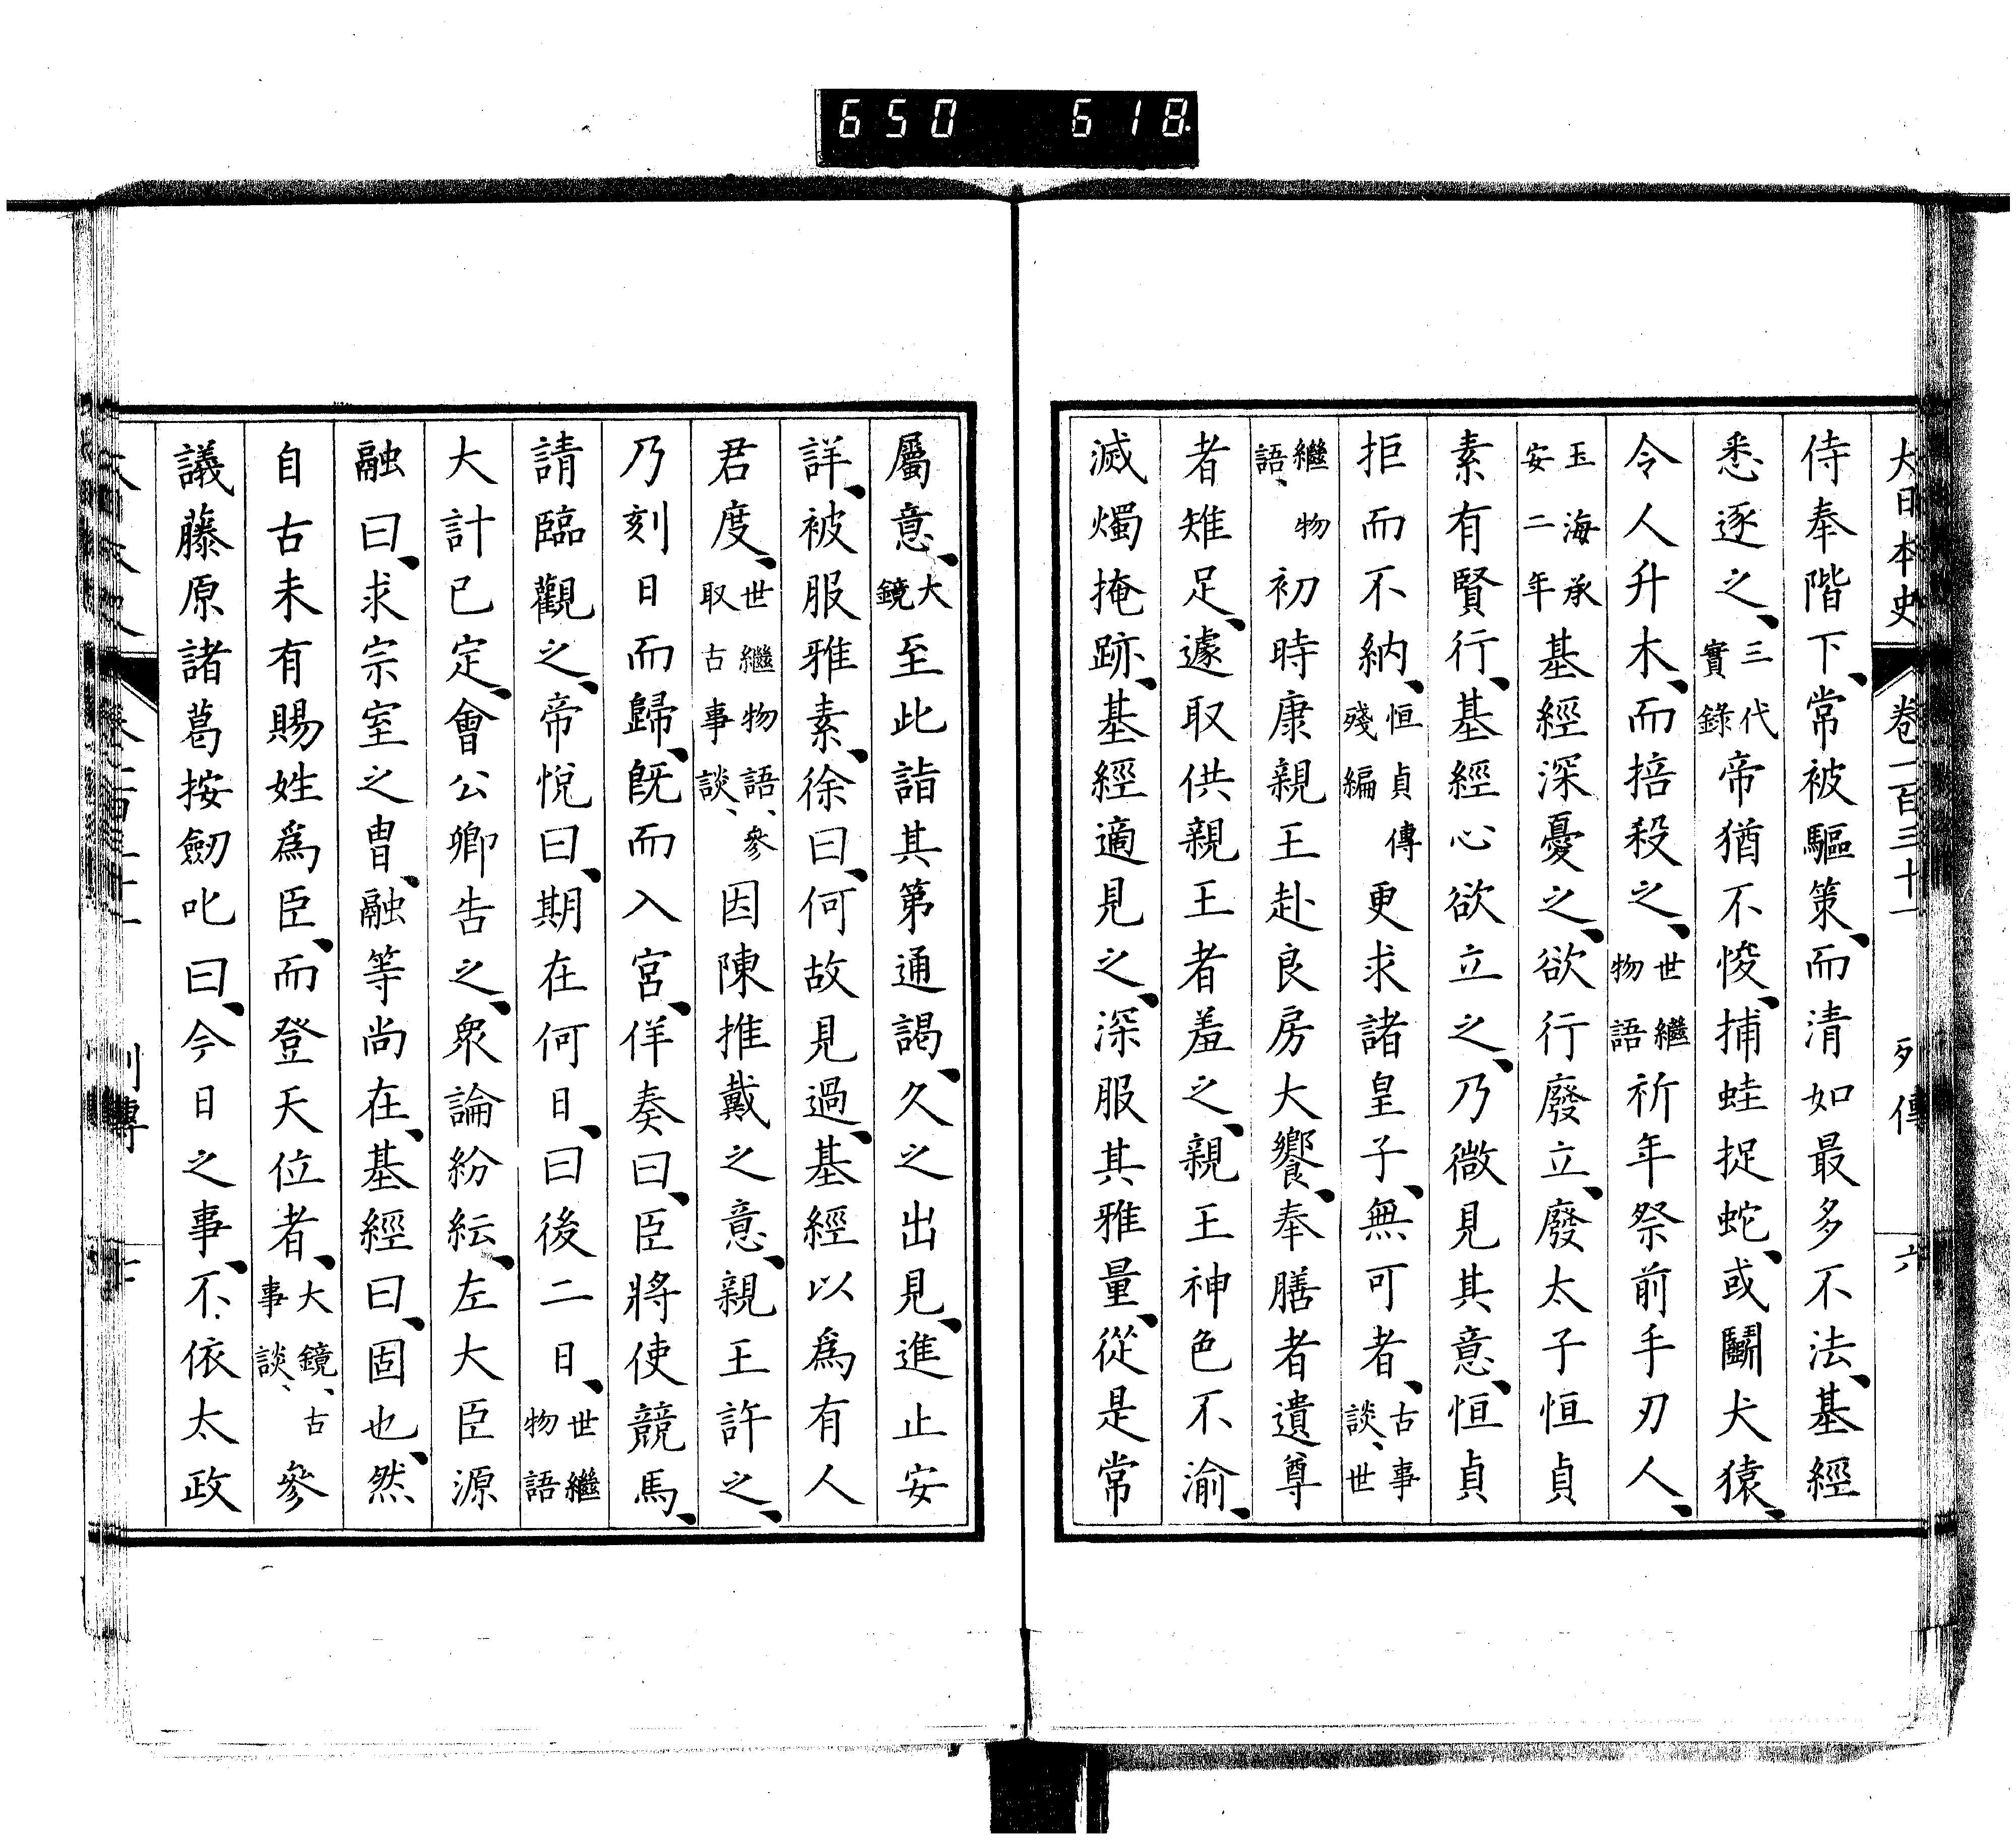 650 618
大日本史 卷一百三十一 列傳 六
侍奉階下、常被驅策、而清如最多不法、基經
悉逐之、三代實錄帝猶不悛、捕蛙捉蛇、或鬭犬猿、
令人升木、而掊殺之、世繼物語祈年祭前手刃人、
玉海承安二年基經深憂之、欲行廢立、廢太子恒貞
素有賢行、基經心欲立之、乃微見其意、恒貞
拒而不納、恒貞傳殘編更求諸皇子、無可者、古事談、世
繼物語、初時康親王赴良房大饗、奉膳者遺尊
者雉足、遽取供親王者羞之、親王神色不渝、
滅燭掩跡、基經適見之、深服其雅量、從是常
屬意、大鏡至此詣其第通謁、久之出見、進止安
詳、被服雅素、徐曰、何故見過、基經以爲有人
君度、世繼物語、參取古事談、因陳推戴之意、親王許之、
乃刻日而歸、既而入宮、佯奏曰、臣將使競馬、
請臨觀之、帝悅曰、期在何日、曰後二日、世繼物語
大計已定、會公卿告之、衆論紛紜、左大臣源
融曰、求宗室之胄、融等尚在、基經曰、固也、然
自古未有賜姓爲臣、而登天位者、大鏡、古事談、參
議藤原諸葛按劒叱曰、今日之事、不依太政